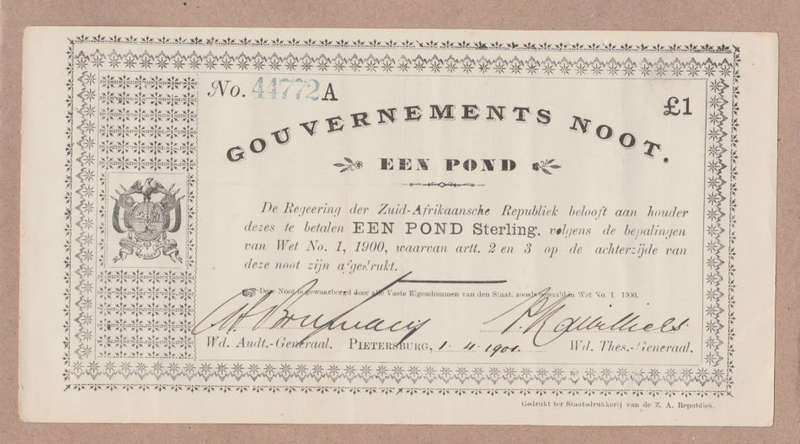 No. 44772 A
£1
GOUVERNEMENTS NOOT.
EEN POND
De Regeering der Zuid-Afrikaansche Republiek belooft aan houder
dezes te betalen EEN POND Sterling, volgens de bepalingen
van Wet No. 1, 1900, waarvan artt. 2 en 3 op de achterzijde van
deze noot zijn afgedrukt.
Deze Noot is gewaarborgd door alle Vaste Eigendommen van den Staat, zooals bepaald in Wet No. 1 1900.
Wd. Audt.-Generaal. PIETERSBURG, 1. 4. 1901. Wd. Thes.-Generaal.
Gedrukt ter Staatsdrukkerij van de Z. A. Republiek.